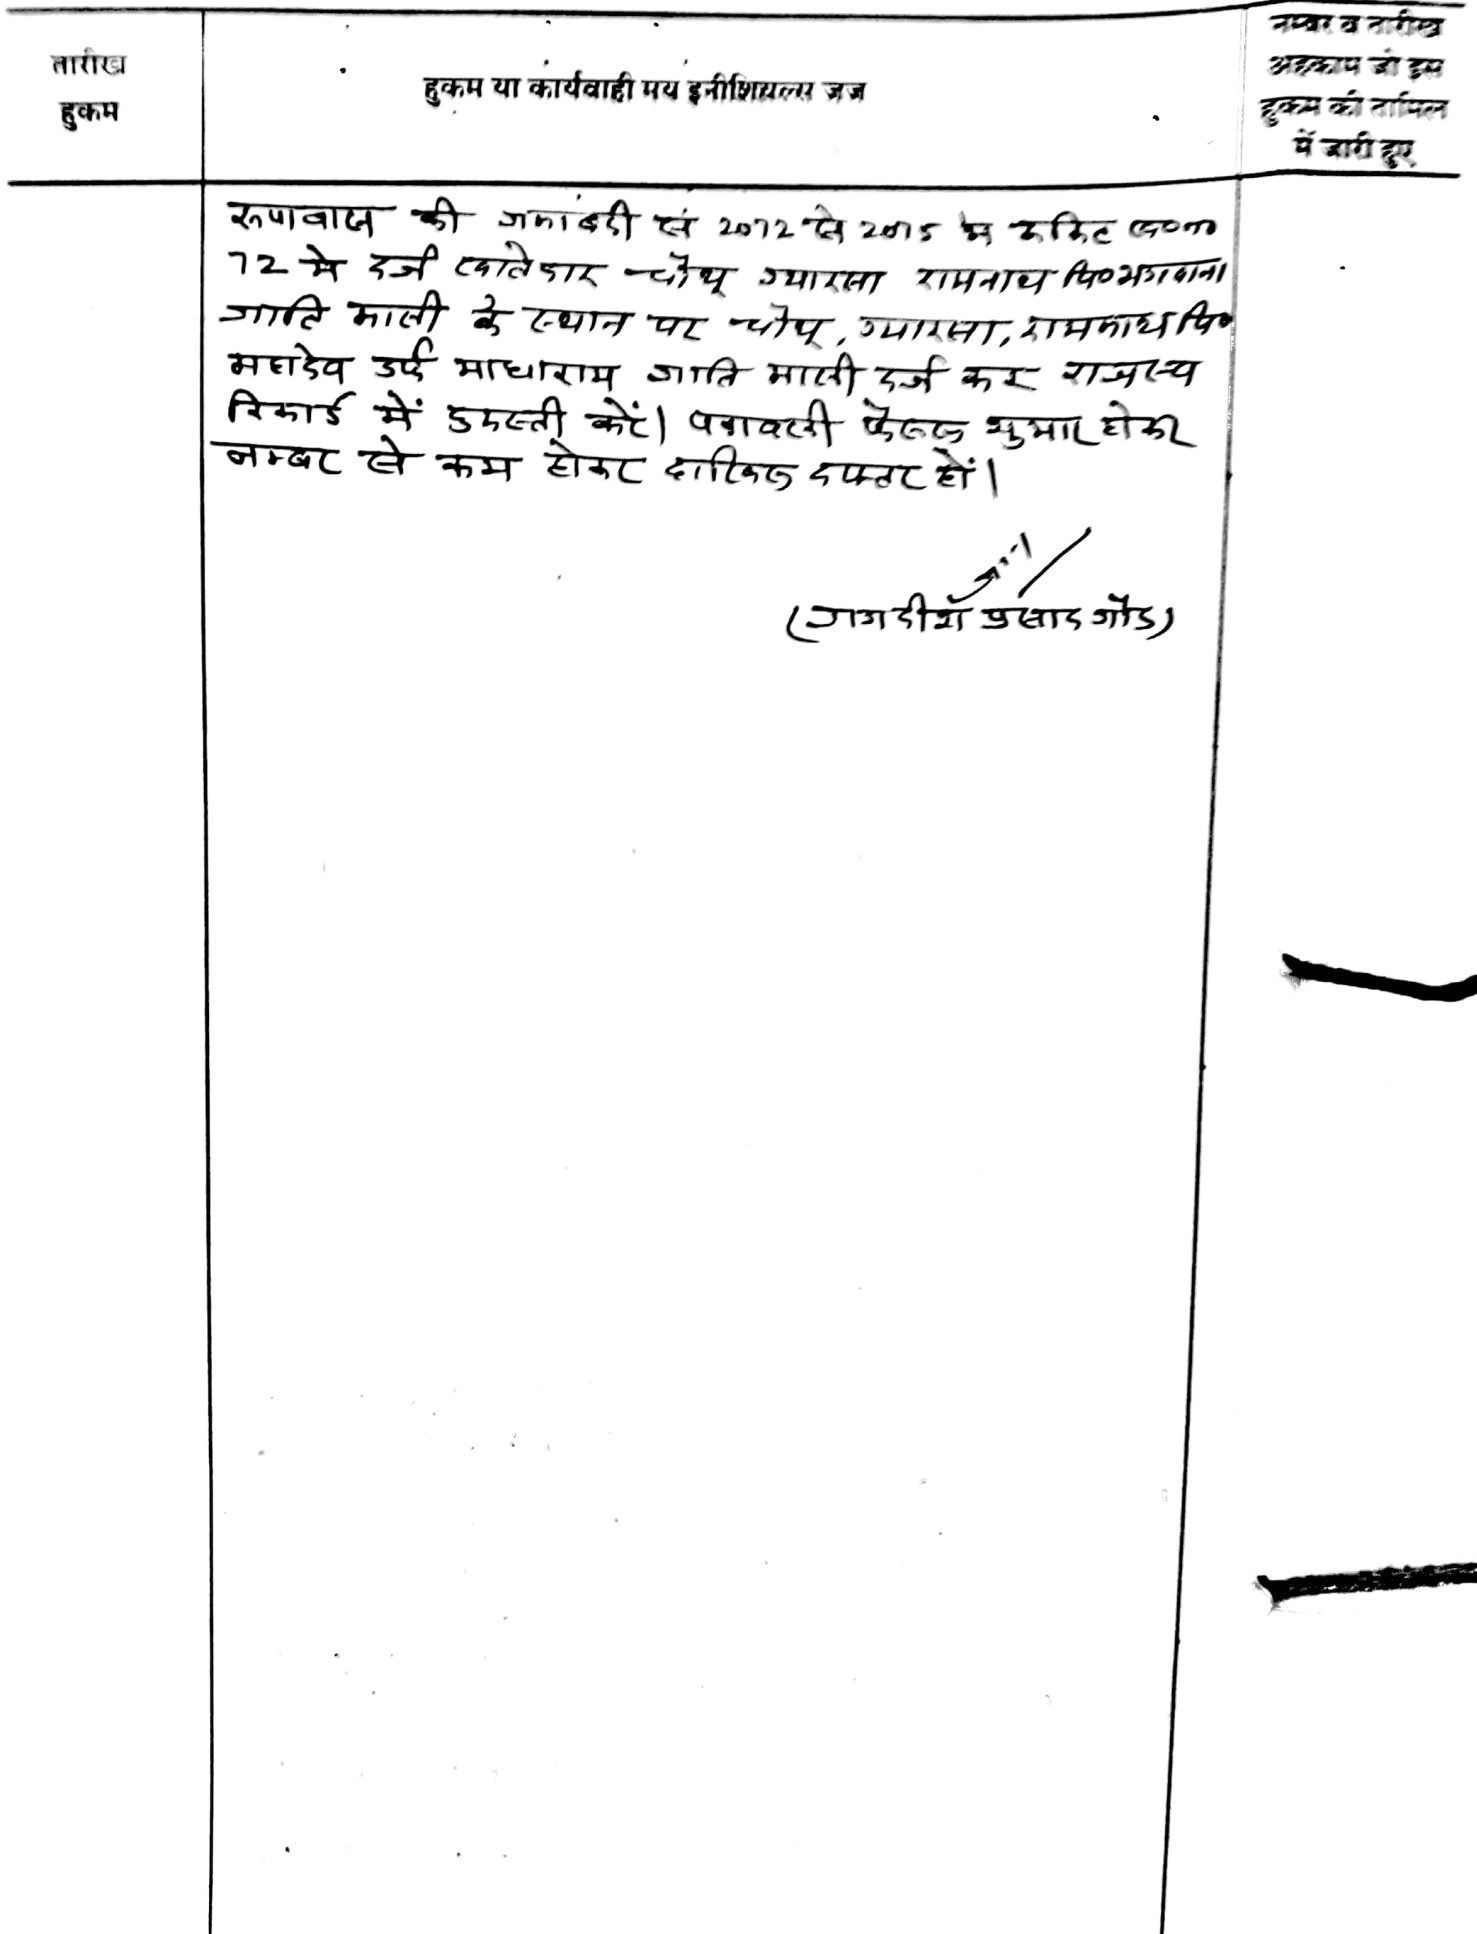 तारीख
हुकम
हुकम या कार्यवाही मय इनीशियल्स जज
नम्बर व तारीख
अहकाम जो इस
हुकम की तामिल
में जारी हुए
रूपावास की जमाबंदी सं 2072 से 2075 के
72 मे दर्ज खातेदार चौथू ग्यारसा रामनाथ पि० भगवाना
जाति माली के स्थान पर चौथू, ग्यारसा, रामनाथ पि०
महादेव उर्फ माधाराम जाति माली दर्ज कर राजस्व
रिकार्ड में दुरुस्ती करें। पत्रावली फैसल शुमार होकर
नम्बर से कम होकर दाखिल दफ्तर हों।
(जगदीश प्रसाद गौड)